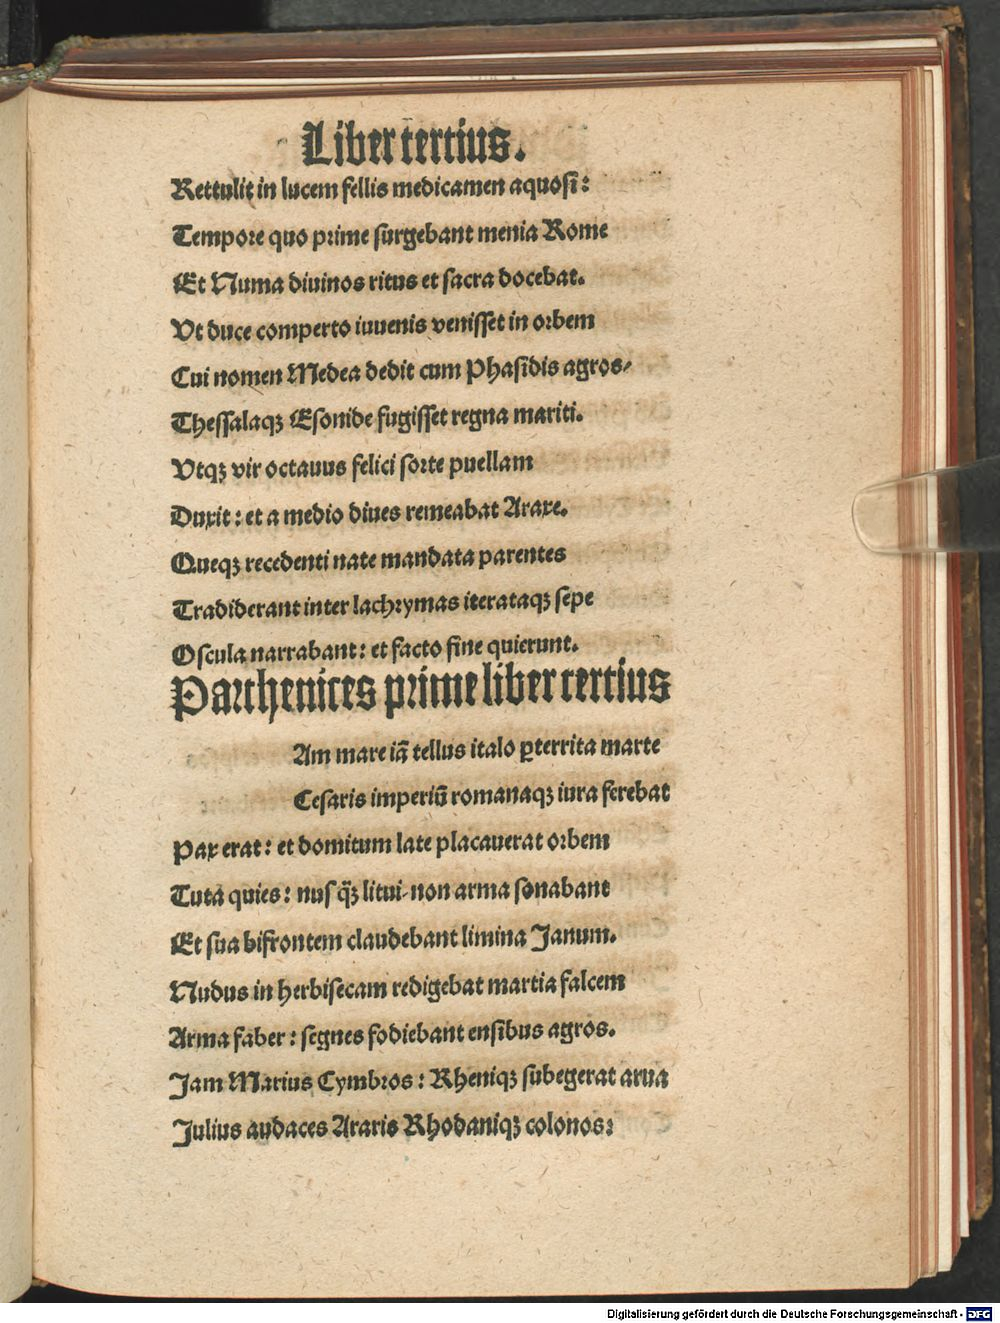 Liber tertius.
Rettulit in lucem fellis medicamen aquosi:
Tempore quo prime surgebant menia Rome
Et Numa diuinos ritus et sacra docebat.
Vt duce comperto iuuenis venisset in orbem
Cui nomen Medea dedit cum Phasidis agros/
Thessalaqꝫ Esonide fugisset regna mariti.
Vtqꝫ vir octauus felici sorte puellam
Duxit: et a medio diues remeabat Araxe.
Queqꝫ recedenti nate mandata parentes
Tradiderant inter lachrymas iterataqꝫ sepe
Oscula narrabant: et facto fine quierunt.
Parthenices prime liber tertius
Am mare iā tellus italo ꝑterrita marte
Cesaris imperiū romanaqꝫ iura ferebat
Pax erat: et domitum late placauerat orbem
Tuta quies: nusq̄ꝫ litui/ non arma sonabant
Et sua bifrontem claudebant limina Janum.
Nudus in herbisecam redigebat martia falcem
Arma faber: segnes fodiebant ensibus agros.
Jam Marius Cymbros: Rheniqꝫ subegerat arua
Julius audaces Araris Rhodaniqꝫ colonos:
Digitalisierung gefördert durch die Deutsche Forschungsgemeinschaft - DFG